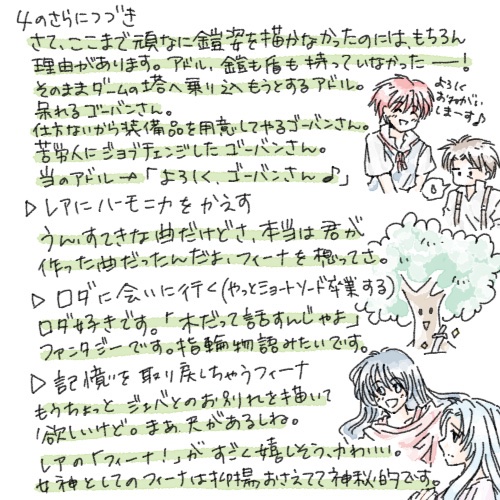 4のさらにつづき
さて、ここまで頑なに鎧姿を描かなかったのには、もちろん
理由があります。アドル、鎧も盾も持っていなかった――!
そのままダームの塔へ乗り込もうとするアドル。
呆れるゴーバンさん。
仕方ないから装備品を用意してやるゴーバンさん。
苦労人にジョブチェンジしたゴーバンさん。
当のアドル→「よろしく、ゴーバンさん♪」
よろしく
おねがい
しまーす♪
▷レアにハーモニカをかえす
うん、すてきな曲だけどさ、本当は君が
作った曲だったんだよ、フィーナを想ってさ。
▷ロダに会いに行く(やっとショートソード卒業する)
ロダ好きです。「木だって話すんじゃよ」
ファンタジーです。指輪物語みたいです。
▷記憶を取り戻しちゃうフィーナ
もうちょっとジェバとのお別れを描いて
欲しいけど。まあ、尺があるしね。
レアの「フィーナ!」がすごく嬉しそう、かわいい。
女神としてのフィーナは抑揚おさえてて神秘的です。